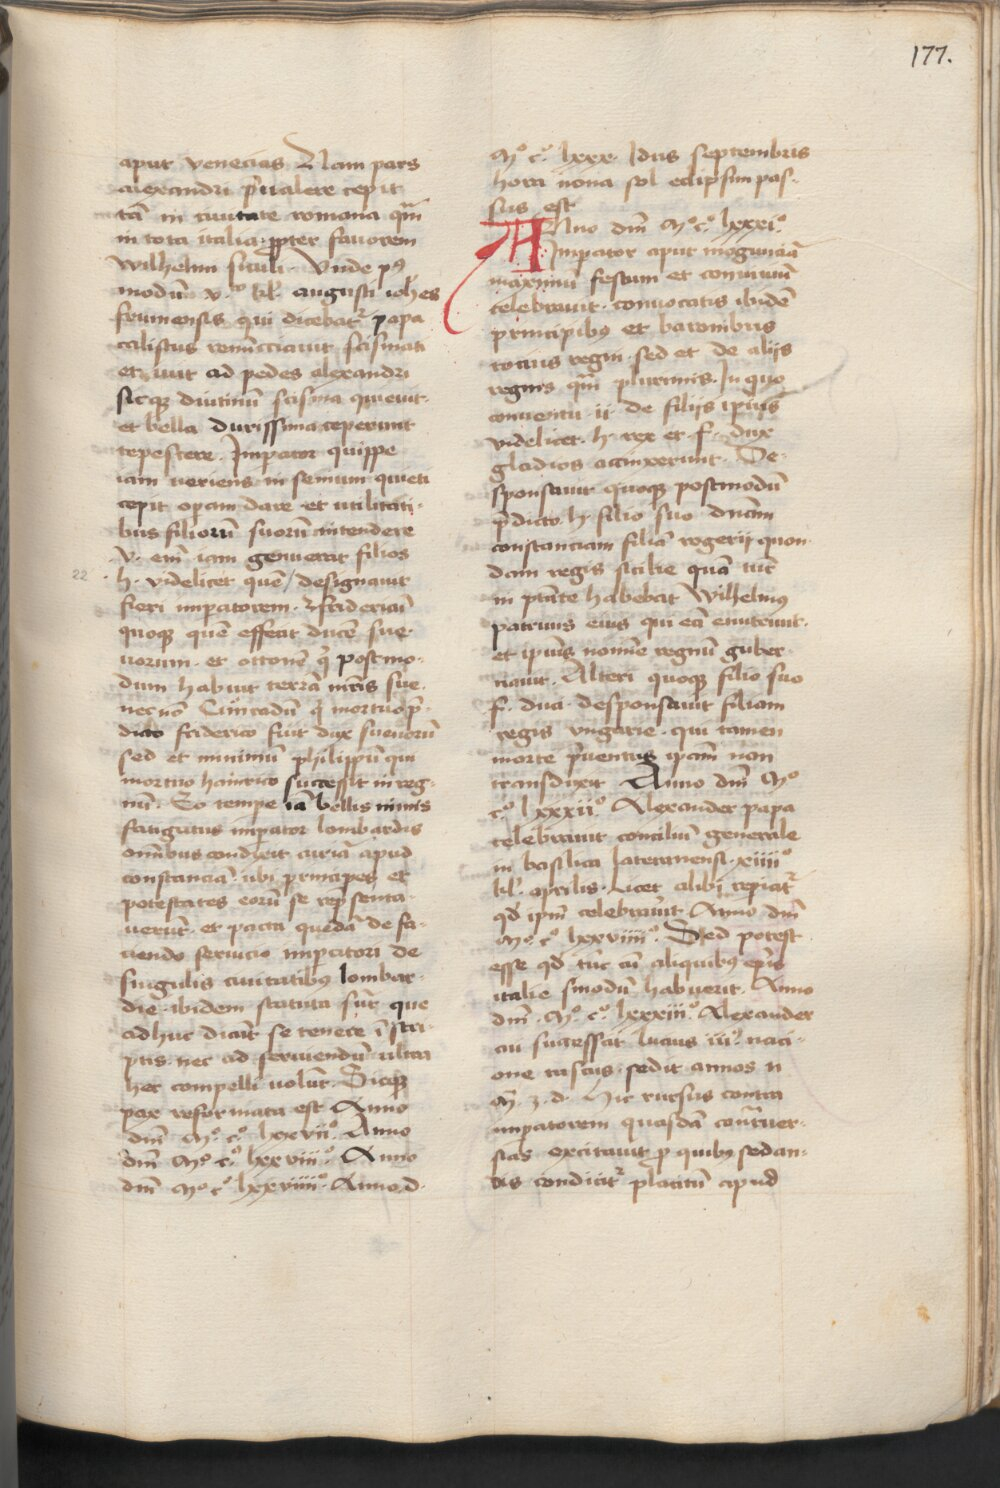 177.
aput venecias Nam pars
alexandri p̄ualere cepit
tā in ciuitate romana qm̄
in tota italia ꝓpter fauorem
Wilhelmi siculi · Vnde pꝰ
modū · v · kl̄ · augusti ioh̄es
strumensis qui dicebat᷑ papa
calistus renūcciauit scismati
et iuit ad pedes alexandri
sicqꝫ diutinū scisma quieuit ·
et bella durissima ceperunt
tepescere · Impator quippe
iam ueriens in senium quieti
cepit opam dare et utilitati-
bus filiorū suorū intendere
· v · em̄ iam genuerat filios
22
· h · videlicet quē / designauit
fieri impatorem · fridericū
quoqꝫ quē effecit ducē sue-
uorum · et ottonē q̄ postmo-
dum habuit terrā mr̄is sue ·
necnō Cūnradū q̄ mortuo p̄-
dicto friderico fuit dux sueuorū
sed et minimū philippū qui
mortuo hainrico successit in reg-
nū · Eo tempe iā bellis nimis
fatigatus impator lombardis
om̄ibus condixit curiā apud
constanciā · ubi principes et
potestates eorū se rep̄senta-
uerūt · et pacta quedā de fa-
ciendo seruicio impatori de
singulis ciuitatibus lombar-
die · ibidem statuta sūt que
adhuc dicūt se tenere ī scri-
ptis · nec ad seruiendū ultra
hec compelli uolūt · Sicqꝫ
pax reformata est Anno
dn̄i Mᵒ · cᵒ · lxxviiᵒ · Anno
dn̄i Mᵒ · cᵒ · lxxviiiᵒ · Anno
dn̄i Mᵒ cᵒ lxxviiiiᵒ · Anno d ·
Mᵒ cᵒ · lxxx · Idus septembris
hora nona sol eclipsim pas-
sus est
Anno dn̄i Mᵒ cᵒ · lxxxiᵒ
Impator aput mogunciā
maximū festum et conuiuiū
celebrauit · conuocatis ibidē
principibꝰ et baronibus
tocius regni · sed et de alijs
regnis qm̄ plurimis · In quo
conuentu ij de filijs ipius
videlicet · h · rex et · f · dux
gladios accinxerunt · De-
sponsauit quoqꝫ postmodū
p̄dicto · h · filio suo dn̄am
constanciam filiā rogerij quon-
dam regis sicilie quā tūc
in ptāte habebat Wilhelmꝰ
patruus eius qui eā enutriuit ·
et ipius nomīe regnū guber-
nauit · Alteri quoqꝫ filio suo
f · duci desponsauit filiam
regis vngarie · qui tamen
morte p̄uentus ipam non
transduxit Anno dn̄i Mᵒ
cᵒ · lxxxiiᵒ · Alexander papa
celebrauit conciliū generale
in basilica lateranensi · xiiiiᵒ
kl̄ · aprilis · Licet alibi repiat᷑
qd̄ ipm̄ celebrauit Anno dn̄i
Mᵒ cᵒ lxxviiiiᵒ · Sed potest
esse qd̄ tūc cū aliquibꝰ ep̄is
italie sinodū habuerit · Anno
dn̄i · Mᵒ · cᵒ · lxxxiiiᵒ · Alexander
cui successit lucius iiiᵒ naci-
one tuscus · sedit annos ii
m̄ · 3 · d · Hic rursus contra
impatorem quasdā cont᷑uer-
sias excitauit p̄ quibꝰ sedan-
dis condicit᷑ placitū apud